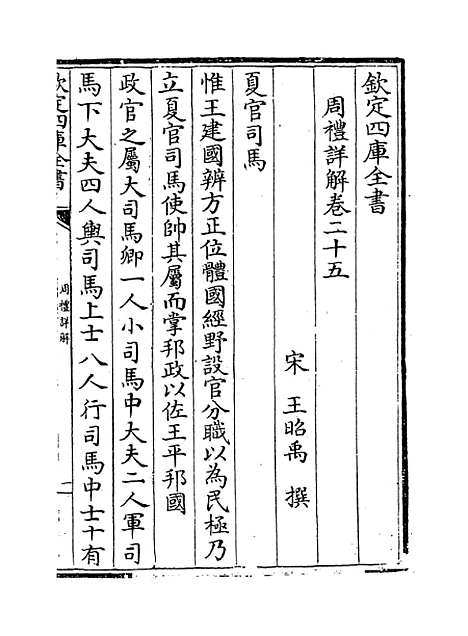 欽定四庫全書
周禮詳解卷二十五
宋 王昭禹 撰
夏官司馬
惟王建國辨方正位體國經野設官分職以為民極乃
立夏官司馬使帥其屬而掌邦政以佐王平邦國
政官之屬大司馬卿一人小司馬中大夫二人軍司
馬下大夫四人輿司馬上士八人行司馬中士十有
欽定四庫全書
周禮詳解